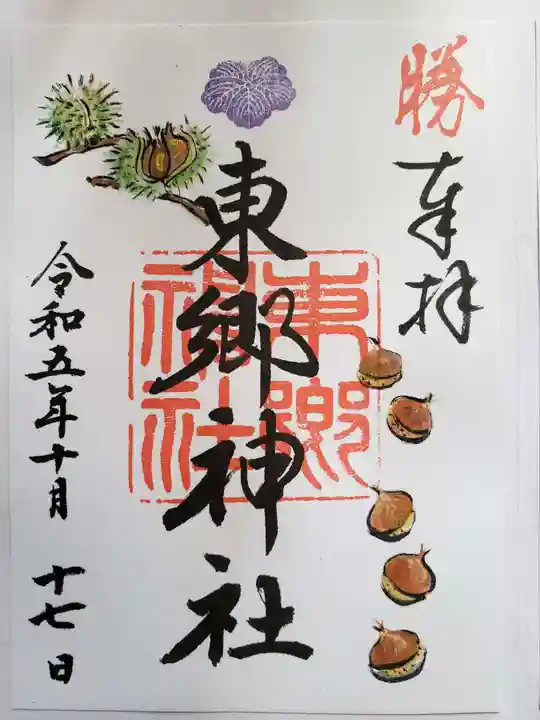 勝
奉拝
東郷神社
東郷神社
令和五年十月 十七日